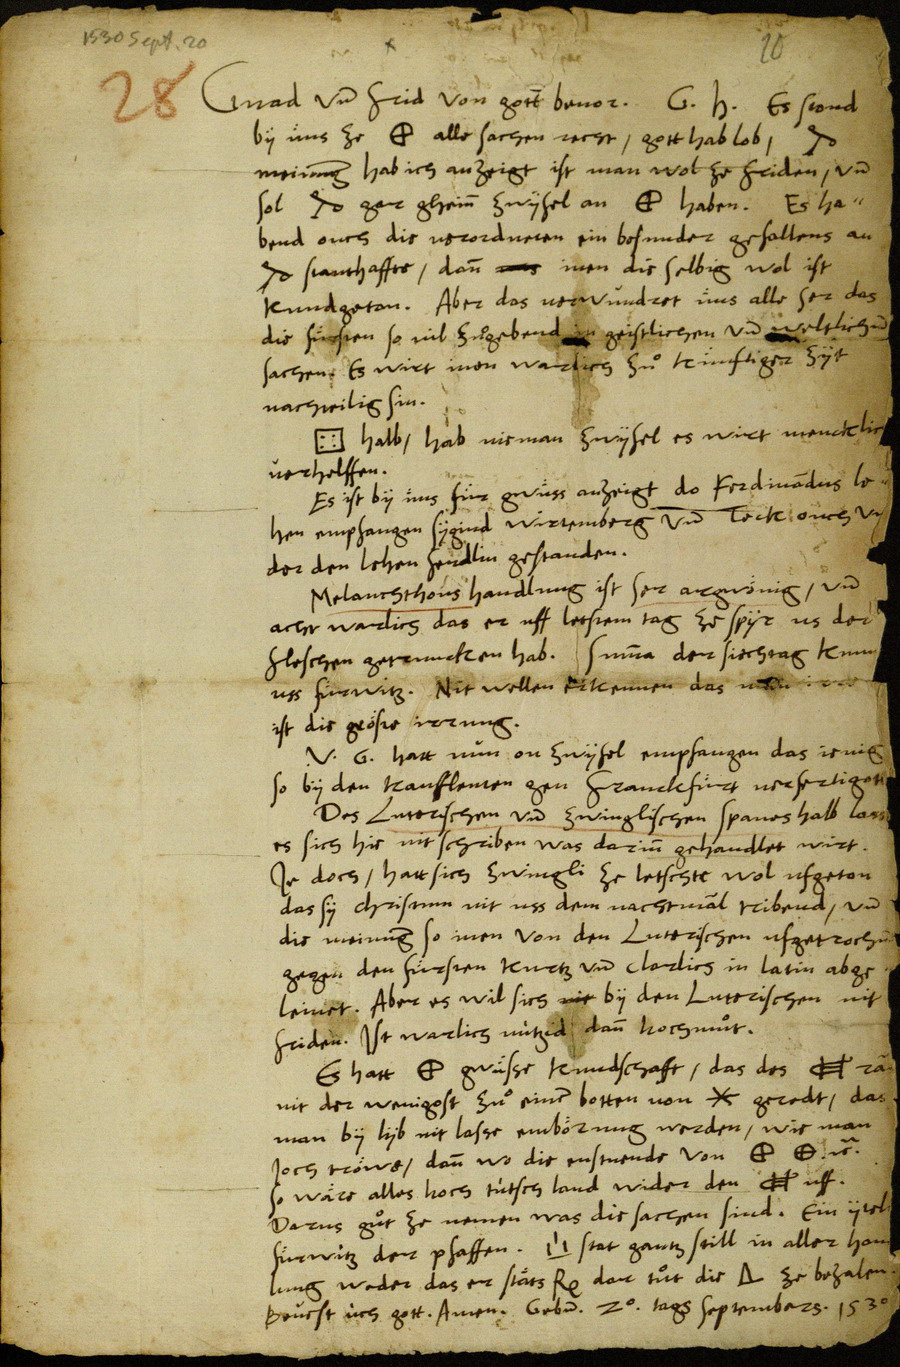 1530 Sept. 20
20
28
Gnad vn̄ frid von gott bevor. G. H. Es stond
by üns ze ⊕ alle sachen recht / gott hab lob /
meinung hab ich anzeigt ist man wol ze friden / vn̄
sol gar ghein̄ zwyfel an ⊕ haben. Es ha〃
bend ouch die verordneten ein besunder gefallens an
standhaffte / dan̄ inen die selbig wol ist
kundgeton. Aber das verwundret üns alle ser das
die fürsten so vil zůgebend in geistlichen vn̄ weltlichen
sachen. Es wirt inen warlich zů künftiger zyt
nachteilig sin.
⚃ halb / hab nieman zwyfel es wirt mencklic
verhelffen.
Es ist by üns für gwüss anzeigt do Ferdinādus le〃
hen empfangen sygind Wirtemberg vn̄ Teck ouch
der den lehen fendlin gestanden.
Melanchthons handlung ist ser argwönig / vn̄
acht warlich das er uff letsten tag ze spyr us der
fleschen getruncken hab. Sum̄a der siechtag kum
uss fürwitz. Nit wellen erkennen das man
ist die gröste irrung.
V. G. hatt nun on zwyfel empfangen das ienig
so by den kaufleuten gen Franckfurt verfertigott
Des Luterischen vn̄ zwinglischen spanes halb lass
es sich hie nit schriben was darin̄ gehandlet wirt.
Je doch / hatt sich zwingli ze letschte wol ufgeton
das sy christum nit uss dem nachtmal tribend / vn̄
die meinung so inen von den Luterischen ufgetrochen
gegen den fürsten kurtz vn̄ clarlich in latin abge
leinet. Aber es wil sich by den Luterischen nit
friden. Ist warlich nützid dan̄ hochmůt.
Es hatt ⊕ gwüsse kundschafft / das des
nit der wenigost zů einē botten von geredt / das
man by lyb nit lasse embörung werden / wie man
joch tröwe / dan̄ wo die enstuende von ⊕ ⊕
so wäre alles hoch tütsch land wider den uff.
Darus gůt ze nemen was die sachen sind. Ein ytel
fürwitz der pfaffen. stat gantz still in aller han
lung weder das er stäts dar tůt die Δ ze bezalen.
Bevilst üch gott. Amen. Gebē. 20. tags Septembers. 1530